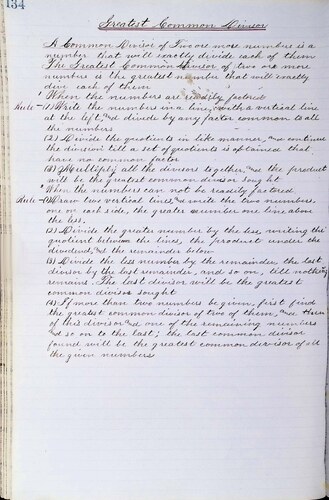 134
Greatest Common Divisor
A Common Divisor of Two or more numbers is a
number that will exactly divide each of them
The Greatest Common Divisor of two or more
number is the greatest number that will exactly
dive each of them
When the numbers are readily factored
Rule – (1) Write the numbers in a line, with a vertical line
at the left, and divide by any factor common to all
the numbers
(2) Divide the quotients in like manner, and continue
the division till a set of quotients is obtained that
have no common factor
(3) Multiply all the divisors together, and the product
will be the greatest common divisor sought
When the numbers can not be readily factored
Rule – (1) Draw two vertical lines, and write the two numbers,
one on each side, the greater number one line above
the less.
(2) Divide the greater number by the less, writing the
quotient between the lines, the product under the
dividend, and the remainder below
(3) Divide the less number by the remainder, the last
divisor by the last remainder, and so on, till nothing
remains. The last divisor will be the greatest
common divisor sought
(4) If more than two numbers be given, first find
the greatest common divisor of two of them, and then
of this divisor and one of the remaining numbers
and so on to the last; the last common divisor
found will be the greatest common devisor of all
the given numbers